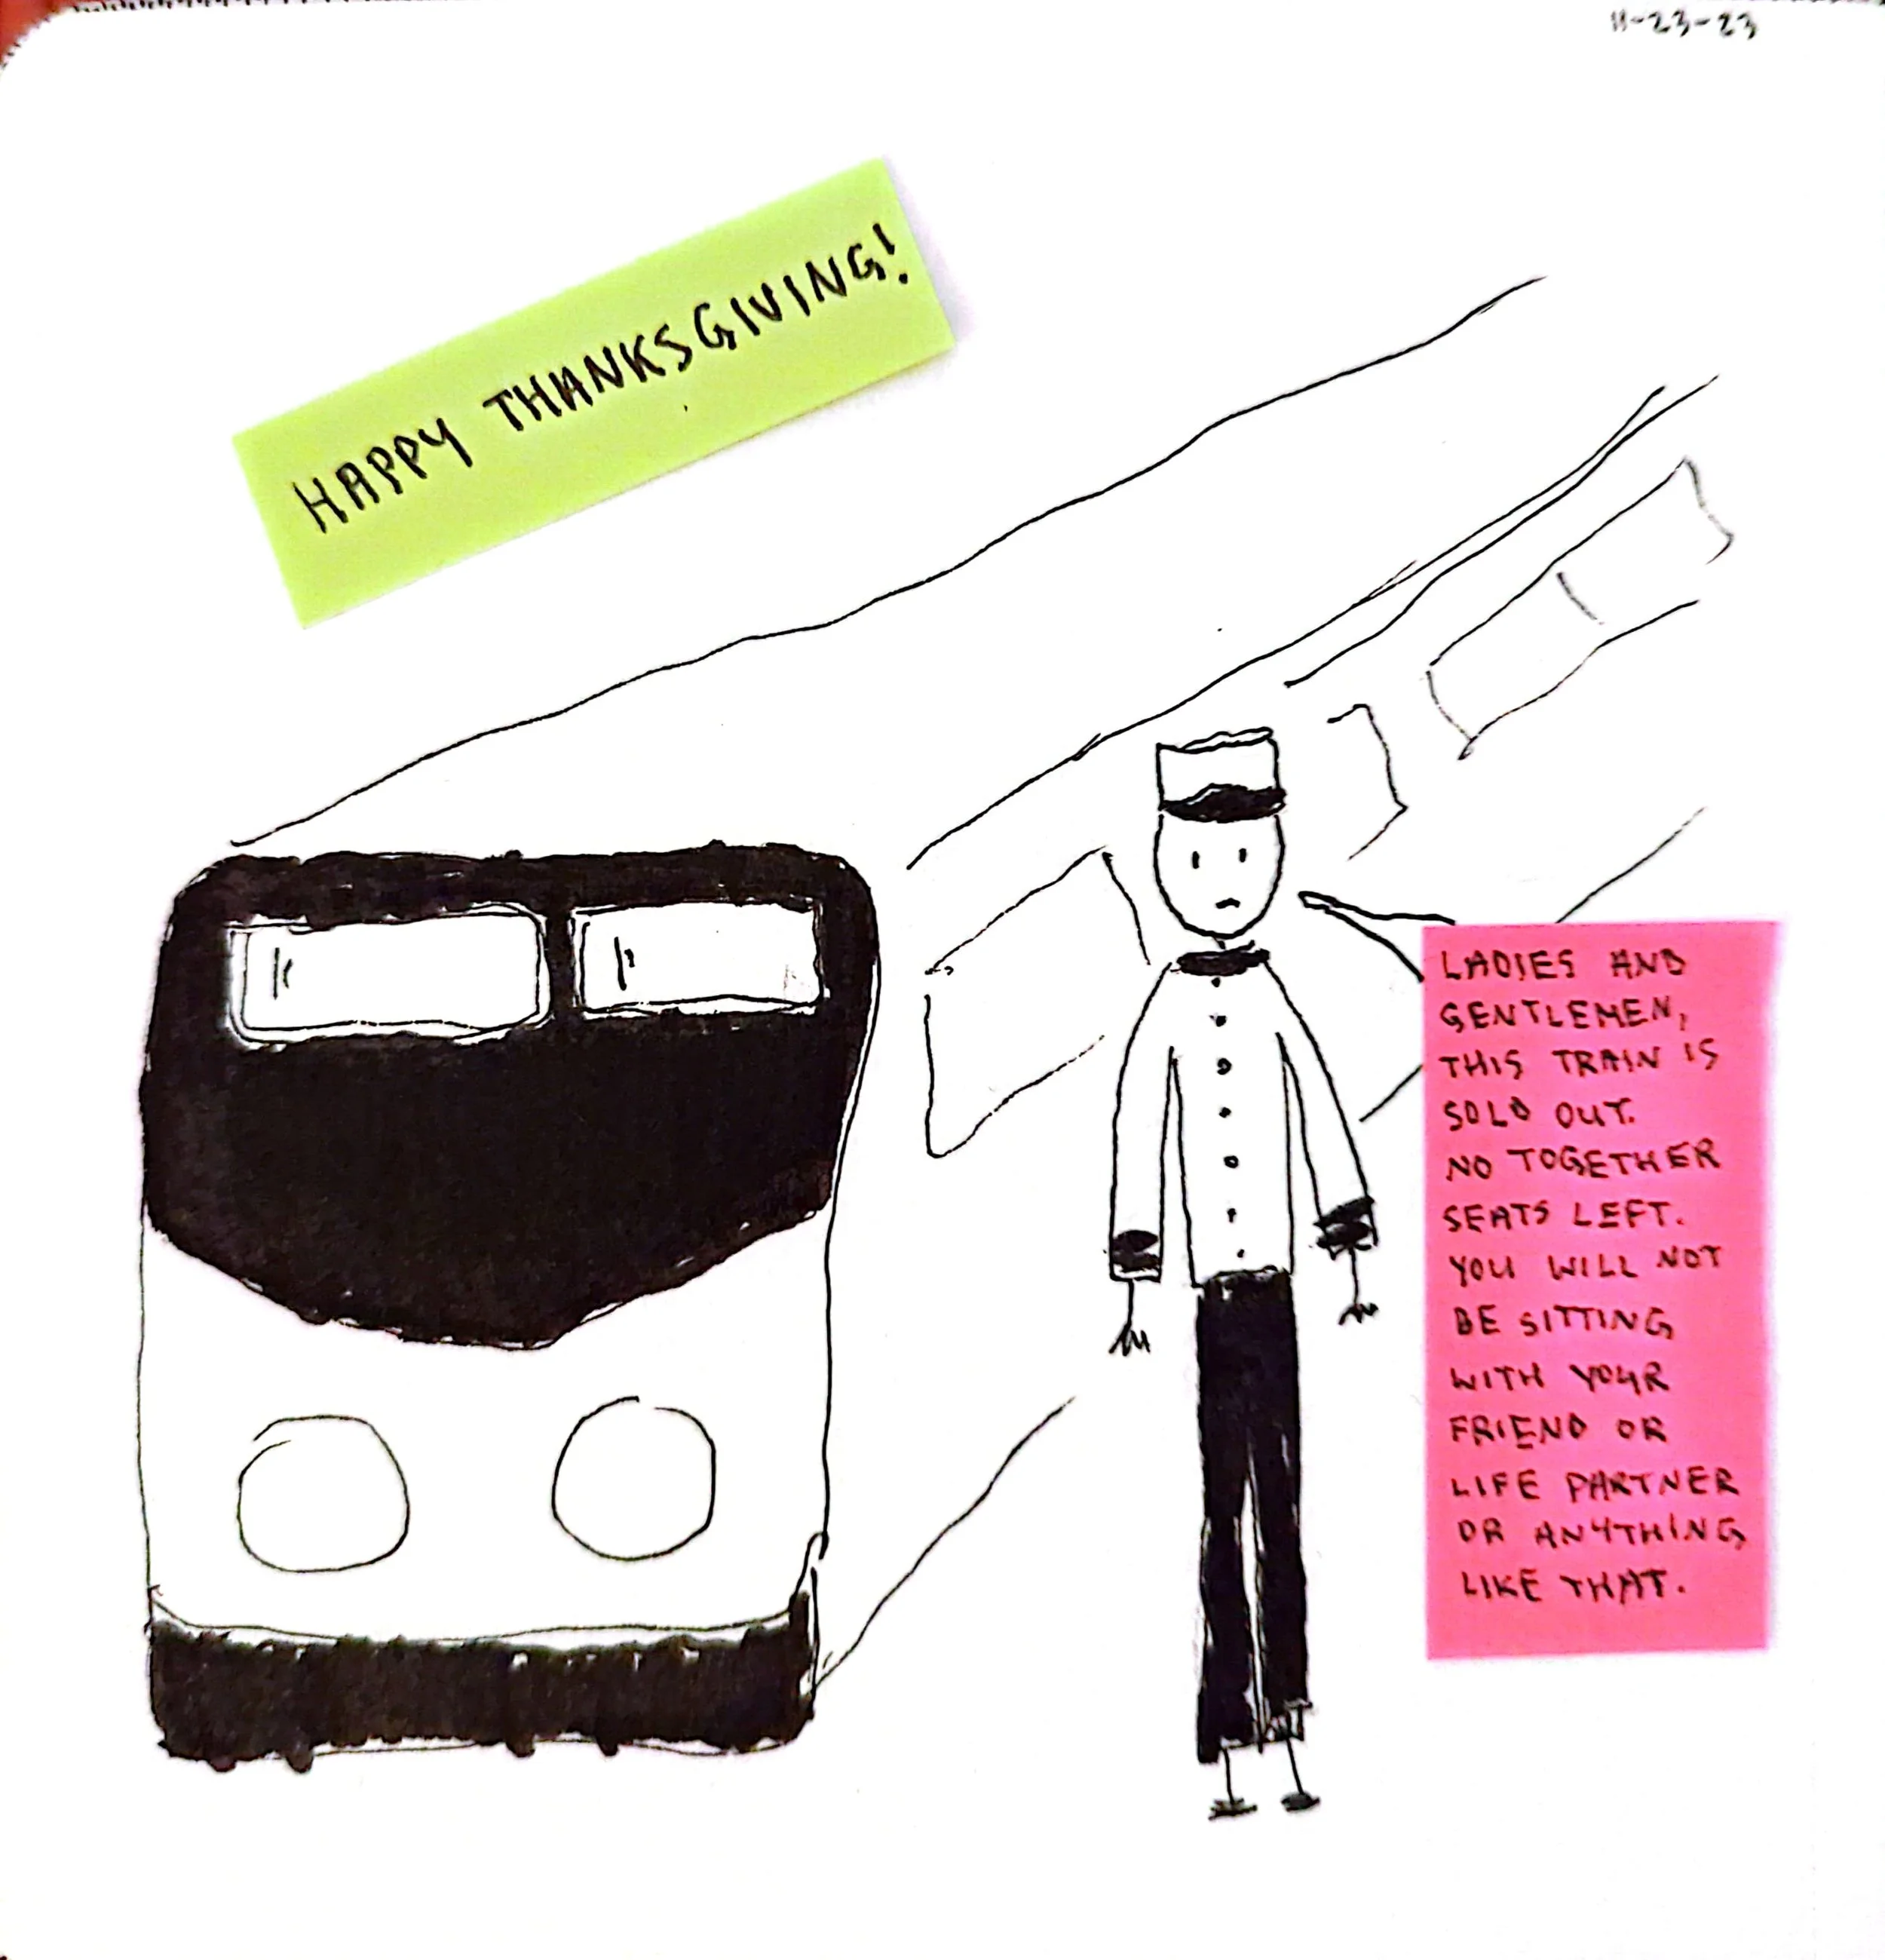 11-23-23
HAPPY THANKSGIVING!
LADIES AND
GENTLEMEN,
THIS TRAIN IS
SOLD OUT.
NO TOGETHER
SEATS LEFT.
YOU WILL NOT
BE SITTING
WITH YOUR
FRIEND OR
LIFE PARTNER
OR ANYTHING
LIKE THAT.